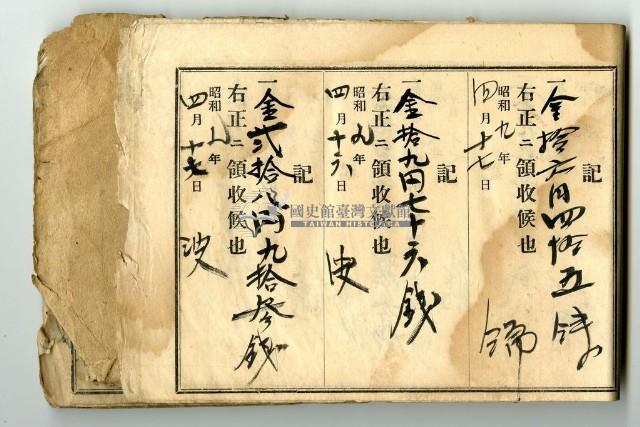 一金拾六円四拾五銭
右正ニ領收候也
昭和九年
四月十七日
記
一金拾九円七十六銭
右正ニ領收候也
昭和九年
四月十六日
記
一金弐拾八円九拾参銭
右正ニ領收候也
昭和九年
四月十七日
國史館臺灣文獻館
TAIWAN HISTORICA